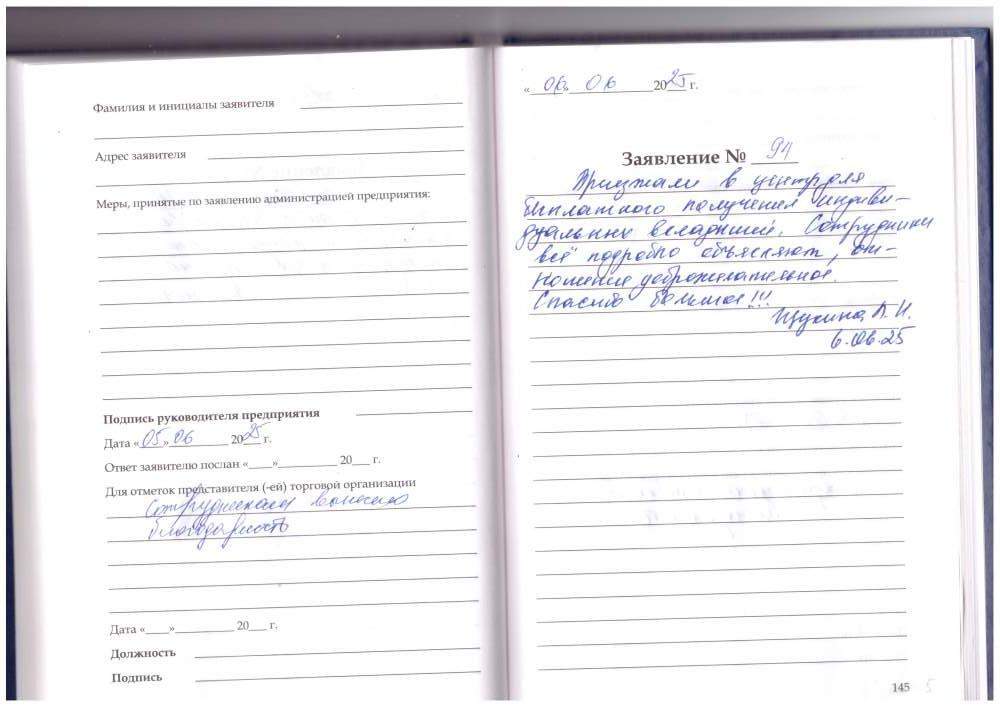 Фамилия и инициалы заявителя
Адрес заявителя
Меры, принятые по заявлению администрацией предприятия:
Подпись руководителя предприятия
Дата «05» 06 2025 г.
Ответ заявителю послан «___»__________ 20___ г.
Для отметок представителя (-ей) торговой организации
Сотрудникам вынесена
благодарность
Дата «____»__________ 20___ г.
Должность
Подпись
«06» 06 2025 г.
Заявление № 94
Приезжали в центр для
бесплатного получения индиви-
дуальных вкладышей. Сотрудники
всё подробно объясняют, от-
ношение доброжелательное.
Спасибо большое!!!
Щукина Л. И.
6.06.25
145